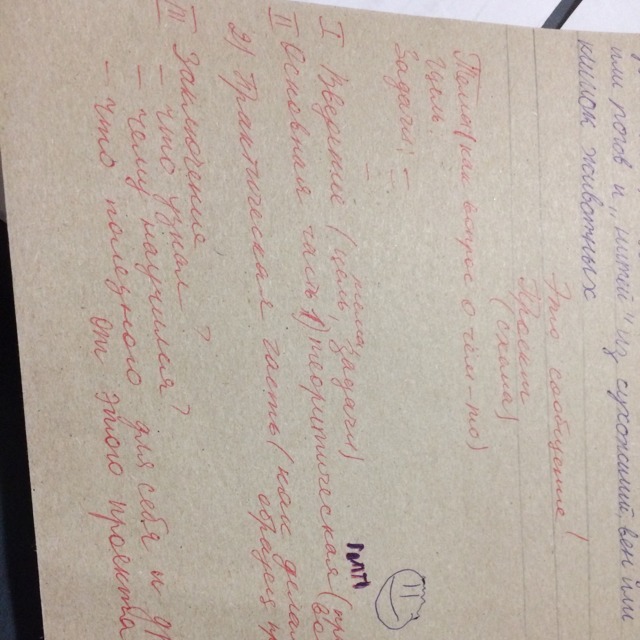 или рогов и „нитей" из сухожилий вен или
кишок животных
Это сообщение!
Проект
(схема)
Тема (или вопрос о чём-то)
Цель
Задачи: –
–
I Введение (цель, задачи)
II Основная часть 1) теоритическая
2) Практическая часть (как
образец
III Заключение
– что узнал ?
– чему научился?
– что полезного для себя и
от этого проекта